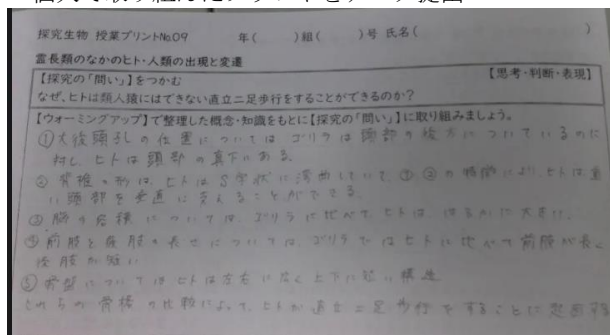 探究生物 授業プリントNo.09 年( )組( )号 氏名( )
霊長類のなかのヒト・人類の出現と変遷
【探究の「問い」】をつかむ 【思考・判断・表現】
なぜ、ヒトは類人猿にはできない直立二足歩行をすることができるのか？
【ウォーミングアップ】で整理した概念・知識をもとに【探究の「問い」】に取り組みましょう。
①大後頭孔の位置については ゴリラは頭部の後方についているのに
対し、ヒトは頭部の真下にある。
② 脊椎の形は、ヒトはS字状に湾曲していて、①②の特徴により、ヒトは重
い頭部を垂直に支えることができる。
③ 脳の容積については、ゴリラに比べて、ヒトは、はるかに大きい。
④前肢と後肢の長さについては、ゴリラではヒトに比べて前肢が長く
後肢が短い
⑤ 骨盤についてはヒトは左右に広く上下に短い構造
の骨格の比較によって、ヒトが直立二足歩行をすることに